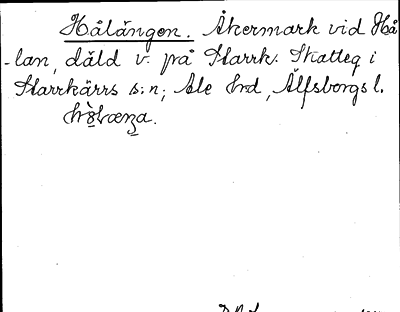 Hålängen. Åkermark vid Hå
-lan, däld v. på Starrk. Skatteg i
Starrkärrs s:n; Ale hrd, Älfsborgs l.